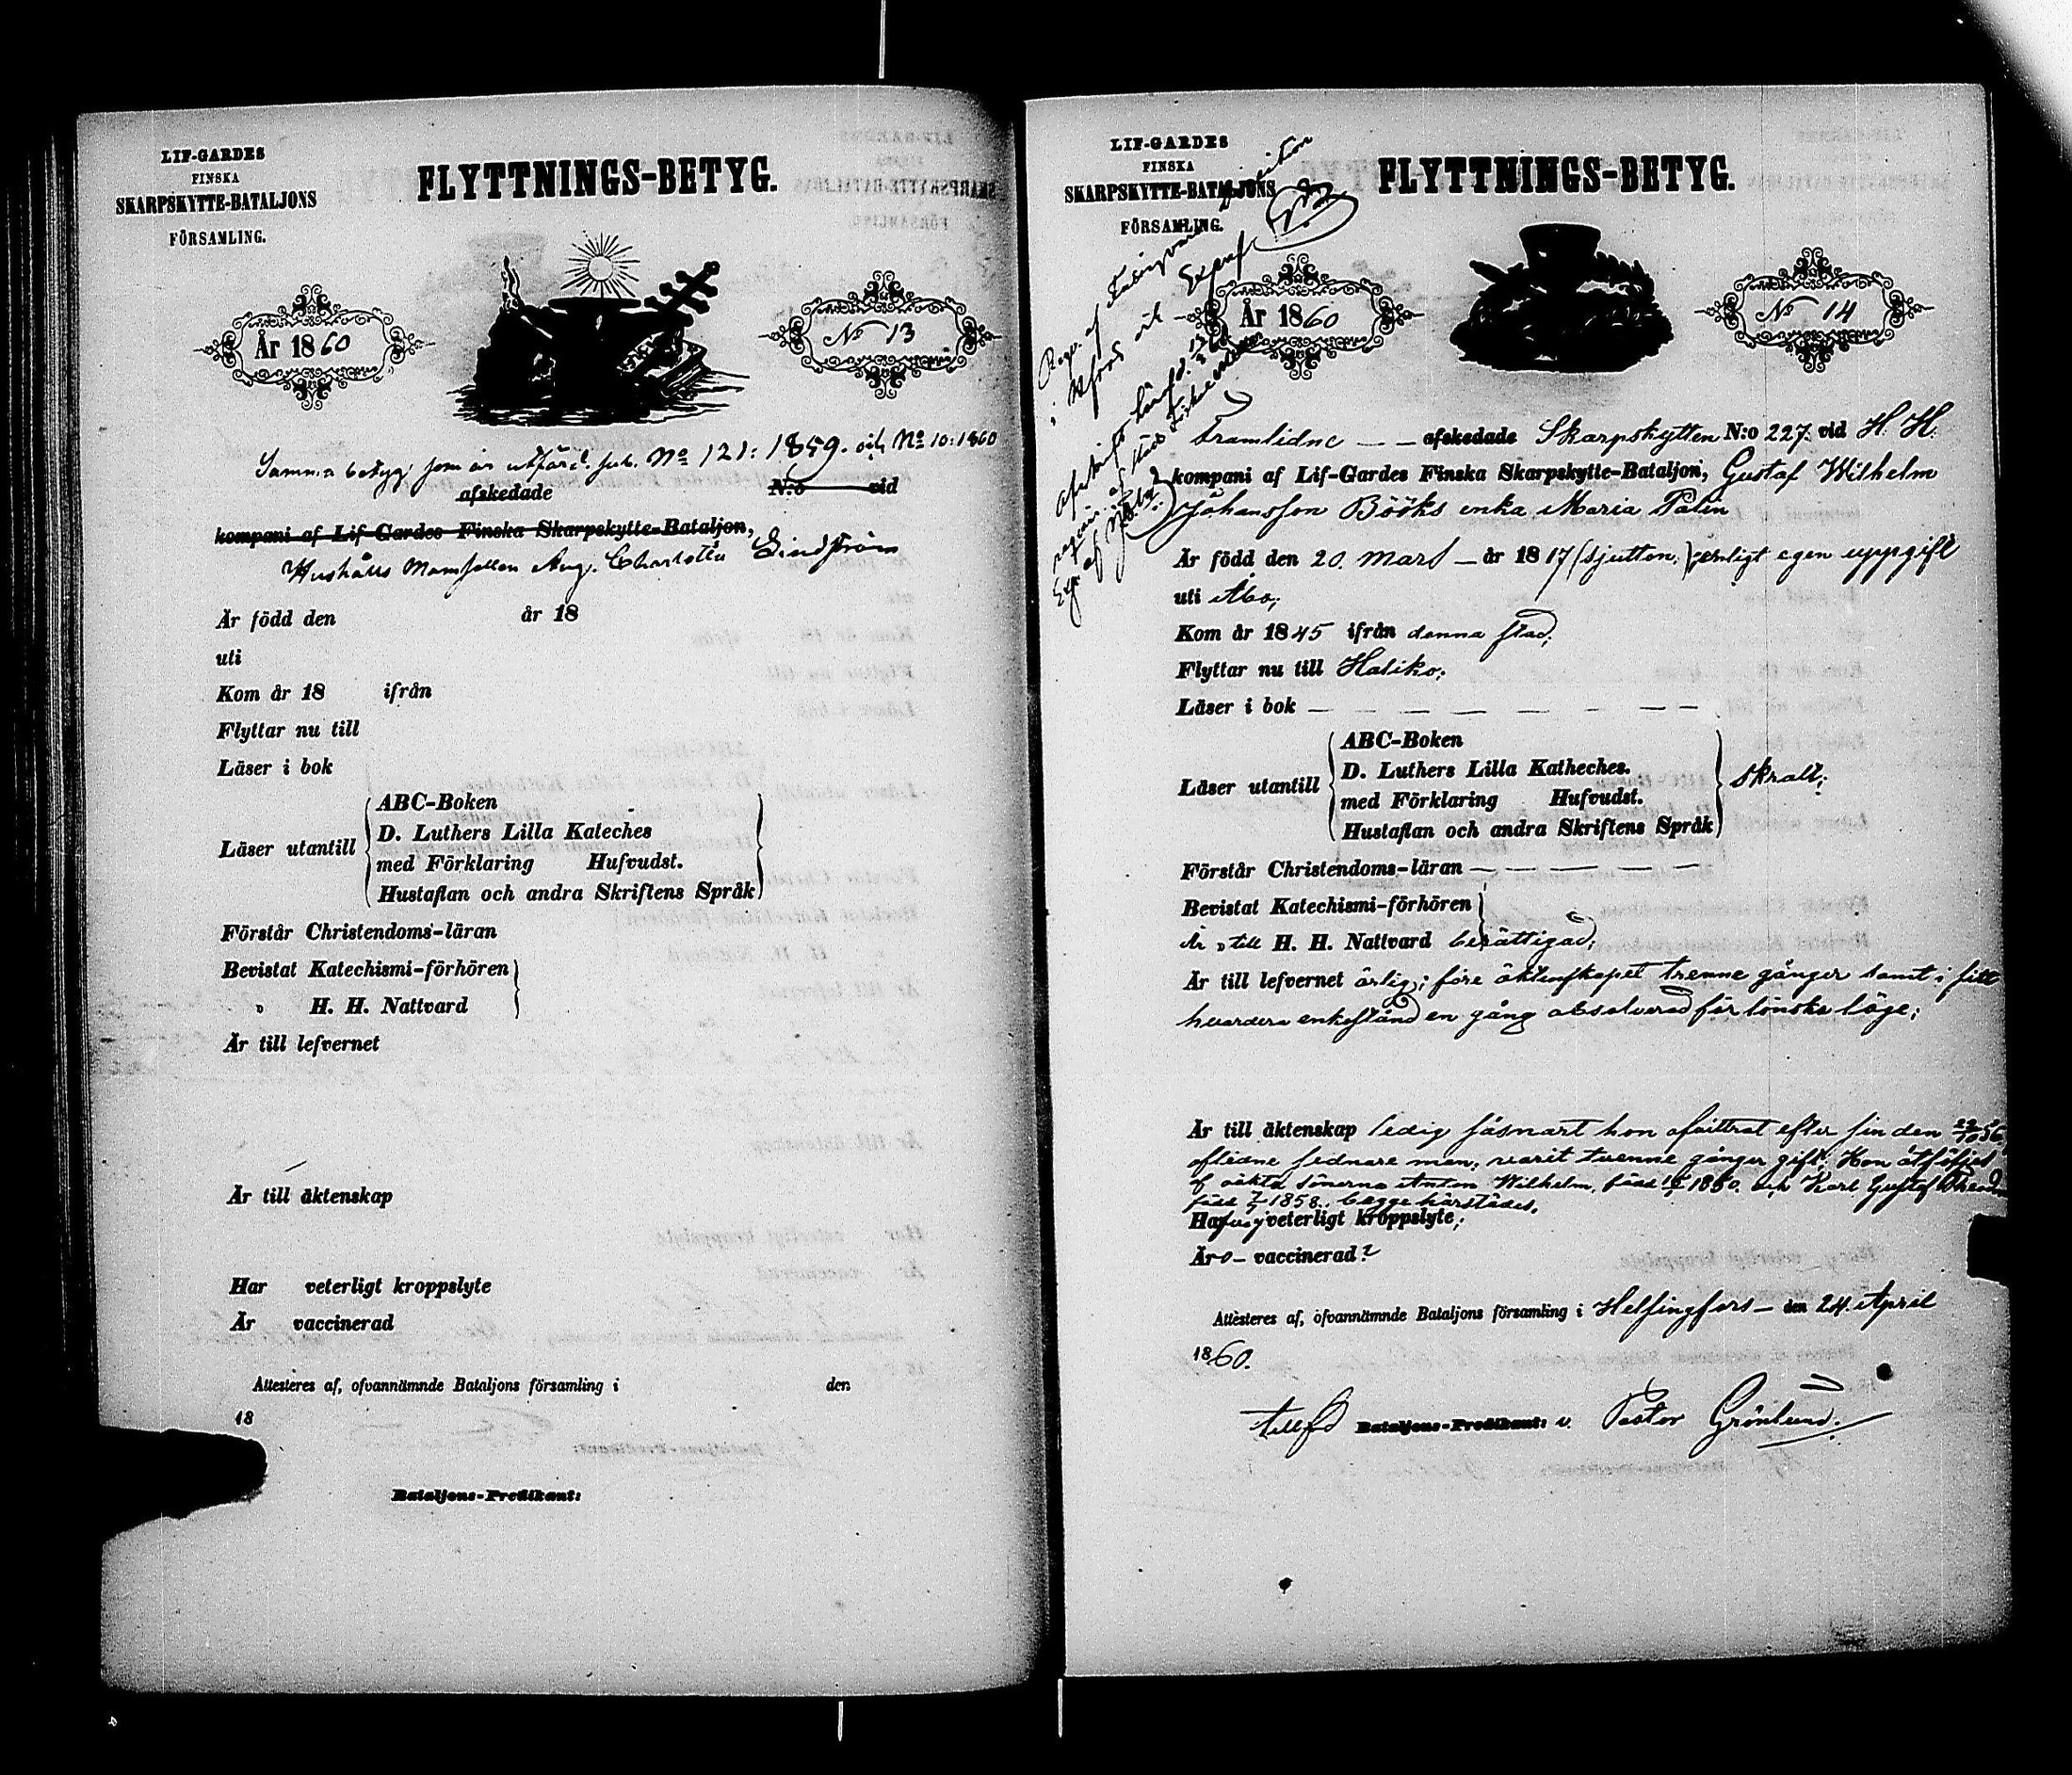 LIF-GARDES
FINSKA
SKARPSKYTTE-BATALJONS
FÖRSAMLING.
FLYTTNINGS-BETYG.
År 1860
No 13
Samma betyg som är utfärd. sub. No 121: 1859. och No 10: 1860
afskedade N:o vid
kompani af Lif-Gardes Finska Skarpskytte-Bataljon,
Hushålls Mamsellen Aug. Charlotta Lindström
Är född den år 18
uti
Kom år 18 ifrån
Flyttar nu till
Läser i bok
Läser utantill
ABC-Boken
D. Luthers Lilla Kateches
med Förklaring Hufvudst.
Hustaflan och andra Skriftens Språk
Förstår Christendoms-läran
Bevistat Katechismi-förhören
„ H. H. Nattvard
Är till lefvernet
Är till äktenskap
Har veterligt kroppslyte
Är vaccinerad
Attesteres af, ofvannämnde Bataljons församling i den
18
Bataljons-Predikant:
LIF-GARDES
FINSKA
SKARPSKYTTE-BATALJONS
FÖRSAMLING.
FLYTTNINGS-BETYG.
År 1860
No 14
framlidne — — afskedade Skarpskytten N:o 227. vid H. H.
kompani af Lif-Gardes Finska Skarpskytte-Bataljon, Gustaf Wilhelm
Johansson Bööks enka Maria Palin
Är född den 20. Mars — år 1817 (sjutton.) enligt egen uppgift
uti Åbo;
Kom år 1845 ifrån denna stad;
Flyttar nu till Haliko;
Läser i bok — — — — — — —
Läser utantill
ABC-Boken
D. Luthers Lilla Katheches.
med Förklaring Hufvudst.
Hustaflan och andra Skriftens Språk
skralt;
Förstår Christendoms-läran — — — — —
Bevistat Katechismi-förhören
Är „ till H. H. Nattvard berättigad;
Är till lefvernet ärlig; före äktenskapet trenne gånger samt i sitt
hvardera enkestånd en gång absolverad för lönska läge;
Är till äktenskap ledig såsnart hon afvittrat efter sin den 22/10 56
aflidne sednare man; varit tvenne gånger gift; Hon åtföljes
af oäkta sönerna Anton Wilhelm, född 1850. och Karl Gustaf
född 1858. begge härstädes.
Har veterligt kroppslyte;
Är o— vaccinerad?
Attesteres af, ofvannämnde Bataljons församling i Helsingfors — den 24. April
1860.
Bataljons-Predikant: v. Pastor Grönlund.